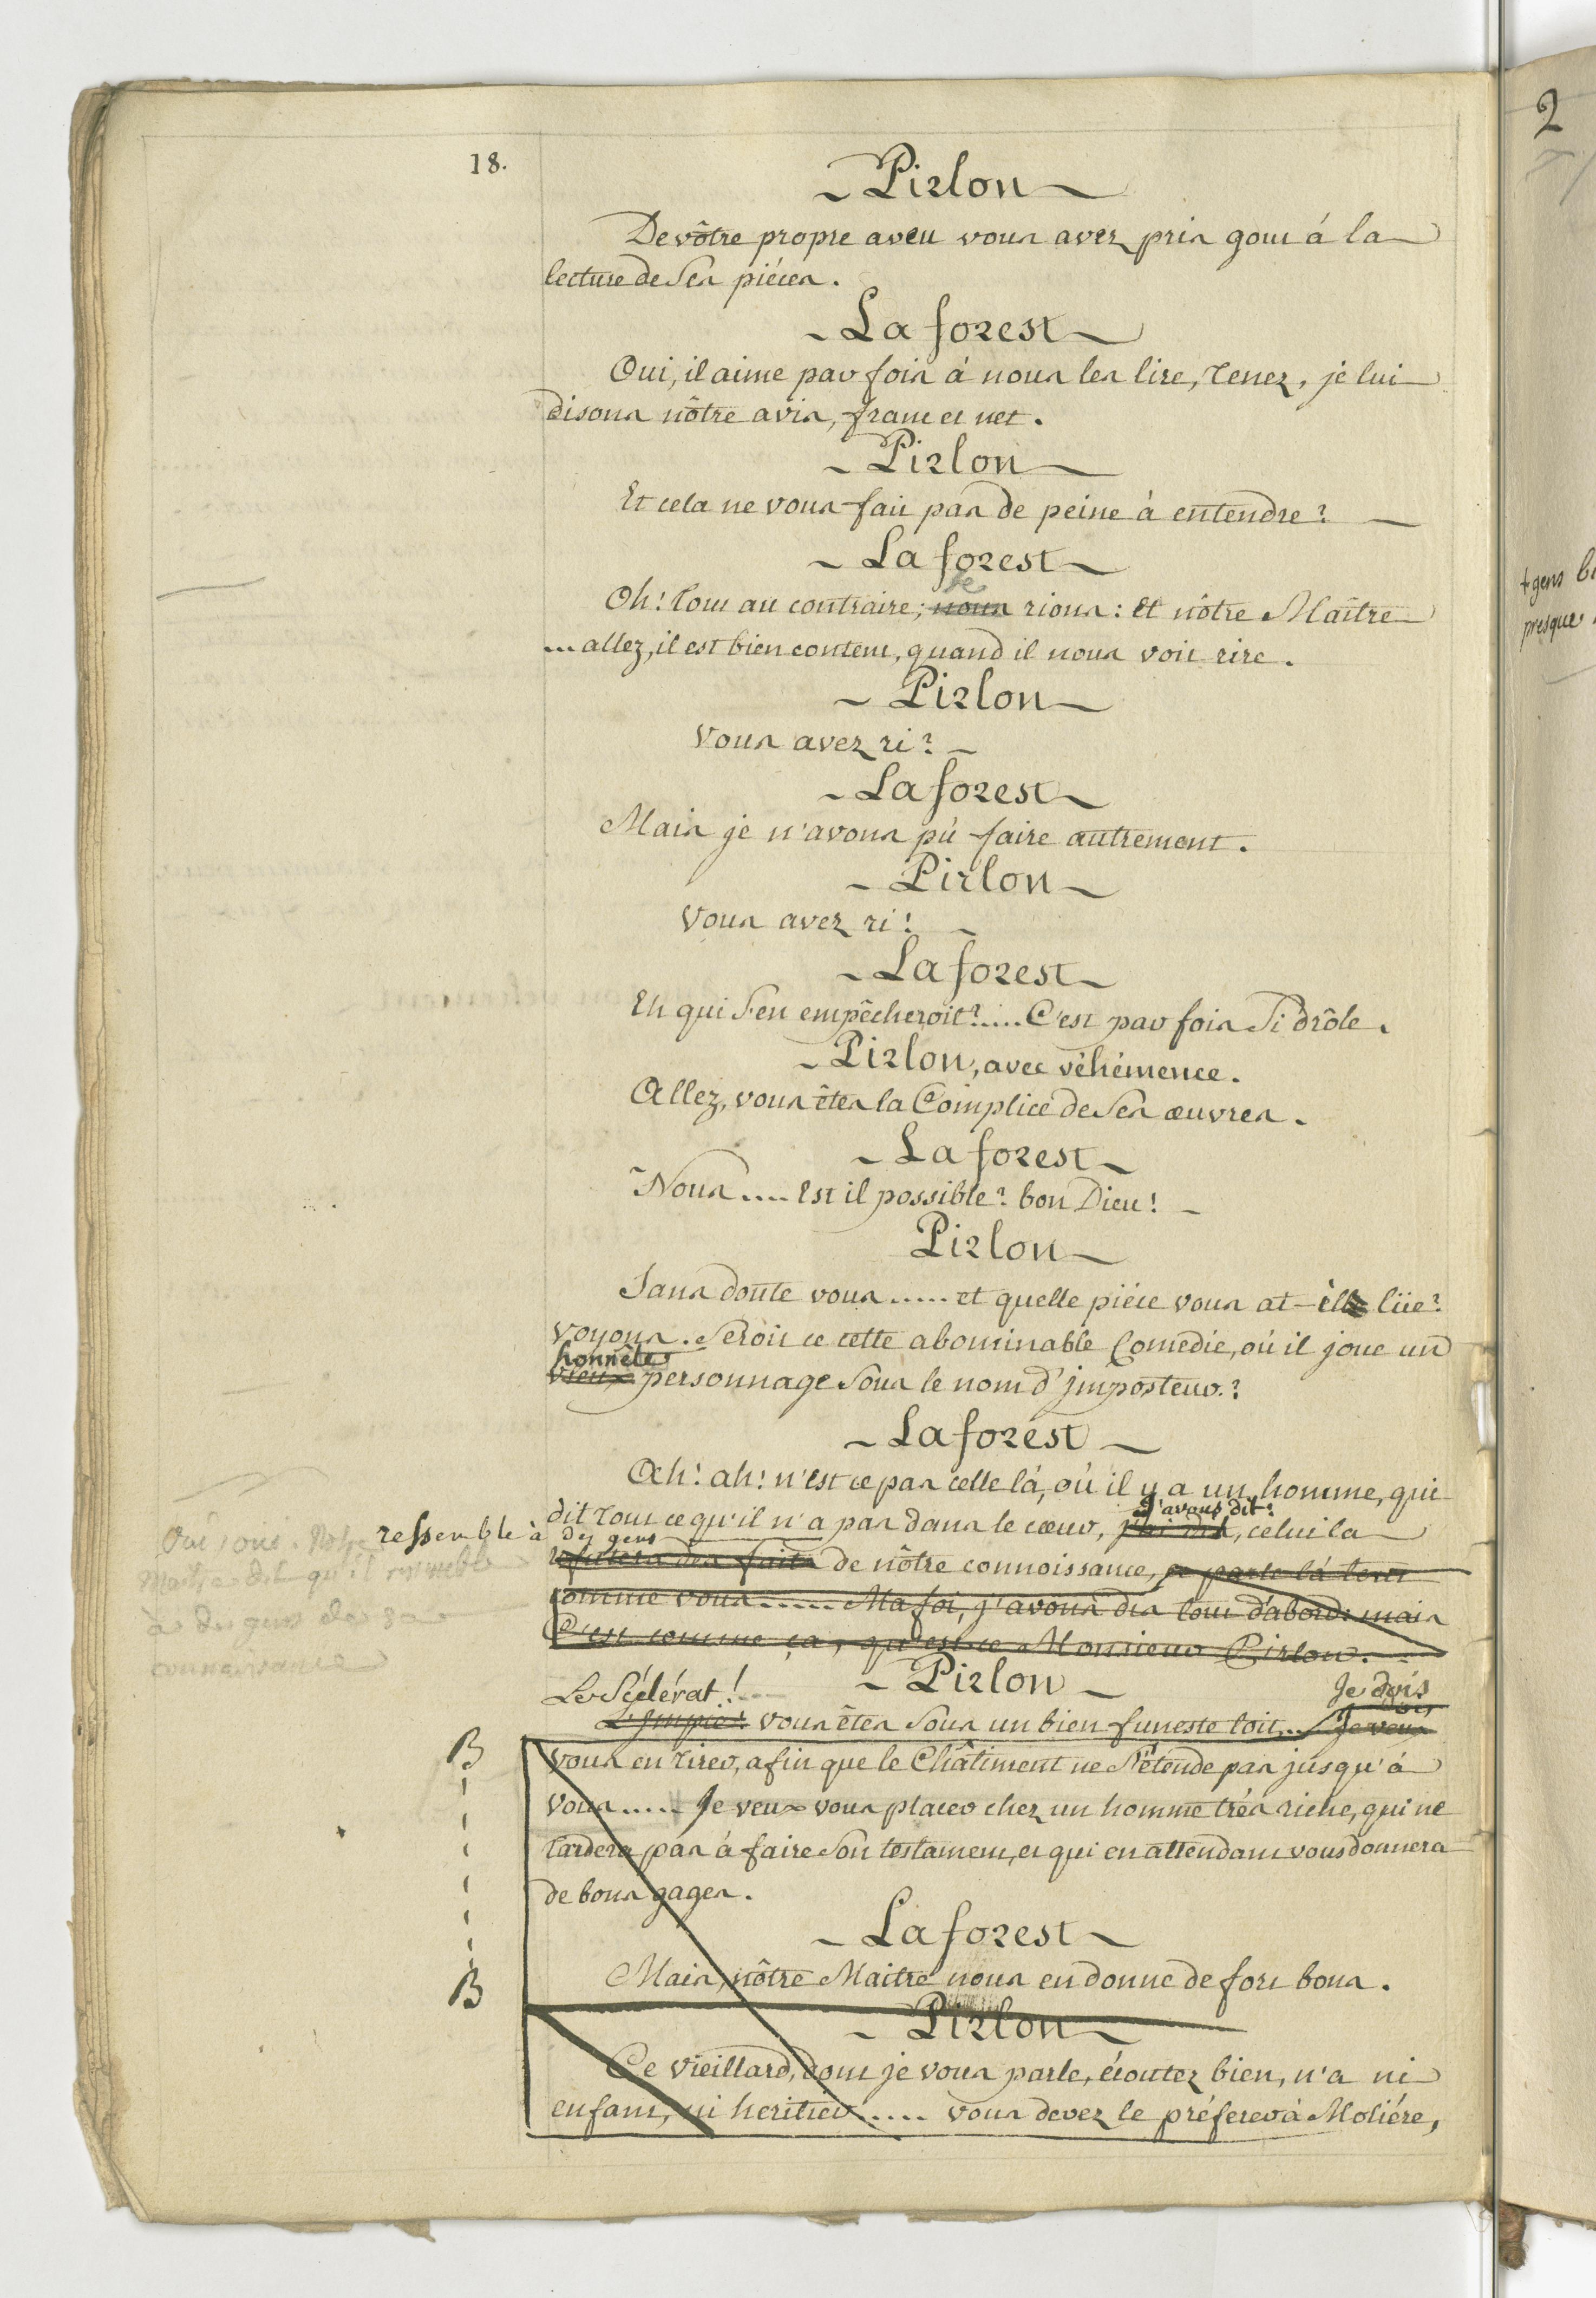 18.
Pirlon
De vôtre propre aveu vous avez pris gout á la
lecture de Ses piéces.
Laforest
Oui, il aime par fois á nous les lire, tenez, je lui
disons nôtre avis, franc et net.
Pirlon
Et cela ne vous fait pas de peine á entendre?
Laforest
je
Oh! tout au contraire; nous rions: Et nôtre Maître
... allez, il est bien content, quand il nous voit rire.
Pirlon
Vous avez ri?
Laforest
Mais je n'avons pû faire autrement.
Pirlon
Vous avez ri!
Laforest
Eh qui s'en empêcheroit?..... C'est par fois Si drôle.
Pirlon, avec véhémence.
Allez, vous êtes la Complice de Ses œuvres.
Laforest
Nous.... Est il possible? bon Dieu!
Pirlon
Sans doute vous..... et quelle piéce vous at-il lüe?
Voyons. Seroit ce cette abominable Comédie, où il joue un
honnête
vieux personnage Sous le nom d'jmposteur?
Laforest
Ah! ah! n'est ce pas celle lá, où il y a un homme, qui
j'avons dit:
dit tout ce qu'il n'a pas dans le cœur, , celui la
ressemble à des gens
de nôtre connoissance, ça parle lá tout
comme vous...... Ma foi, j'avons dis tout d'abord: mais
C'est comme ça, qu'est ce Monsieur Pirlon.
Oui oui. Notre
Maitre dit qu'il ressemble
à des gens de sa
connaissance
Pirlon
Le Scélérat! Je dois
L'jmpie! vous êtes Sous un bien funeste toit... Je veux
B
vous en tirer, afin que le Châtiment ne S'étende pas jusqu'á
vous..... Je veux vous placer chez un homme trés riche, qui ne
tardera pas á faire Son testament, et qui en attendant vous donnera
de bons gages.
Laforest
Mais, nôtre Maître nous en donne de fort bons.
B
Pirlon
Ce vieillard, dont je vous parle, écoutez bien, n'a ni
enfant, ni heritier..... vous devez le préferer á Moliére,
2
+ gens
presque